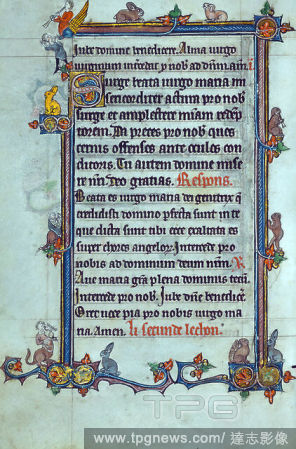 Iube domine benedicere. Alma uirgo
uirginum intercedat pro nob ad dnm. am.
Surge beata uirgo maria mi
sericorditer actum pro nob
surge et amplectere
torem. Da preces pro nob ques
offensos ante oculos con
ditoris. Tu autem domine mise
rere nri. deo gratias. Respons.
Beata es uirgo maria dei genitrix q
credidisti domino pfecta sunt in te
que dicta sunt tibi ecce exaltata es
super choros angelor. Intercede pro
nobis ad dominum deum nrm.
Aue maria gra plena dominus tecu.
Intercede pro nob. Iube dne benedicer.
Oret uoce pia pro nobis uirgo ma
ria. Amen. li secunde lecon.
TPG
www.tpgnews.com/ 達志影像